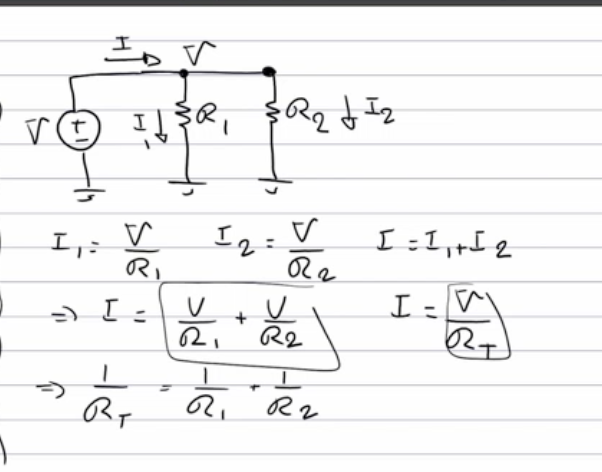 I V
V + - I₁ R₁ R₂ I₂
I₁ = V/R₁ I₂ = V/R₂ I = I₁ + I₂
⇒ I = V/R₁ + V/R₂ I = V/R_T
⇒ 1/R_T = 1/R₁ + 1/R₂